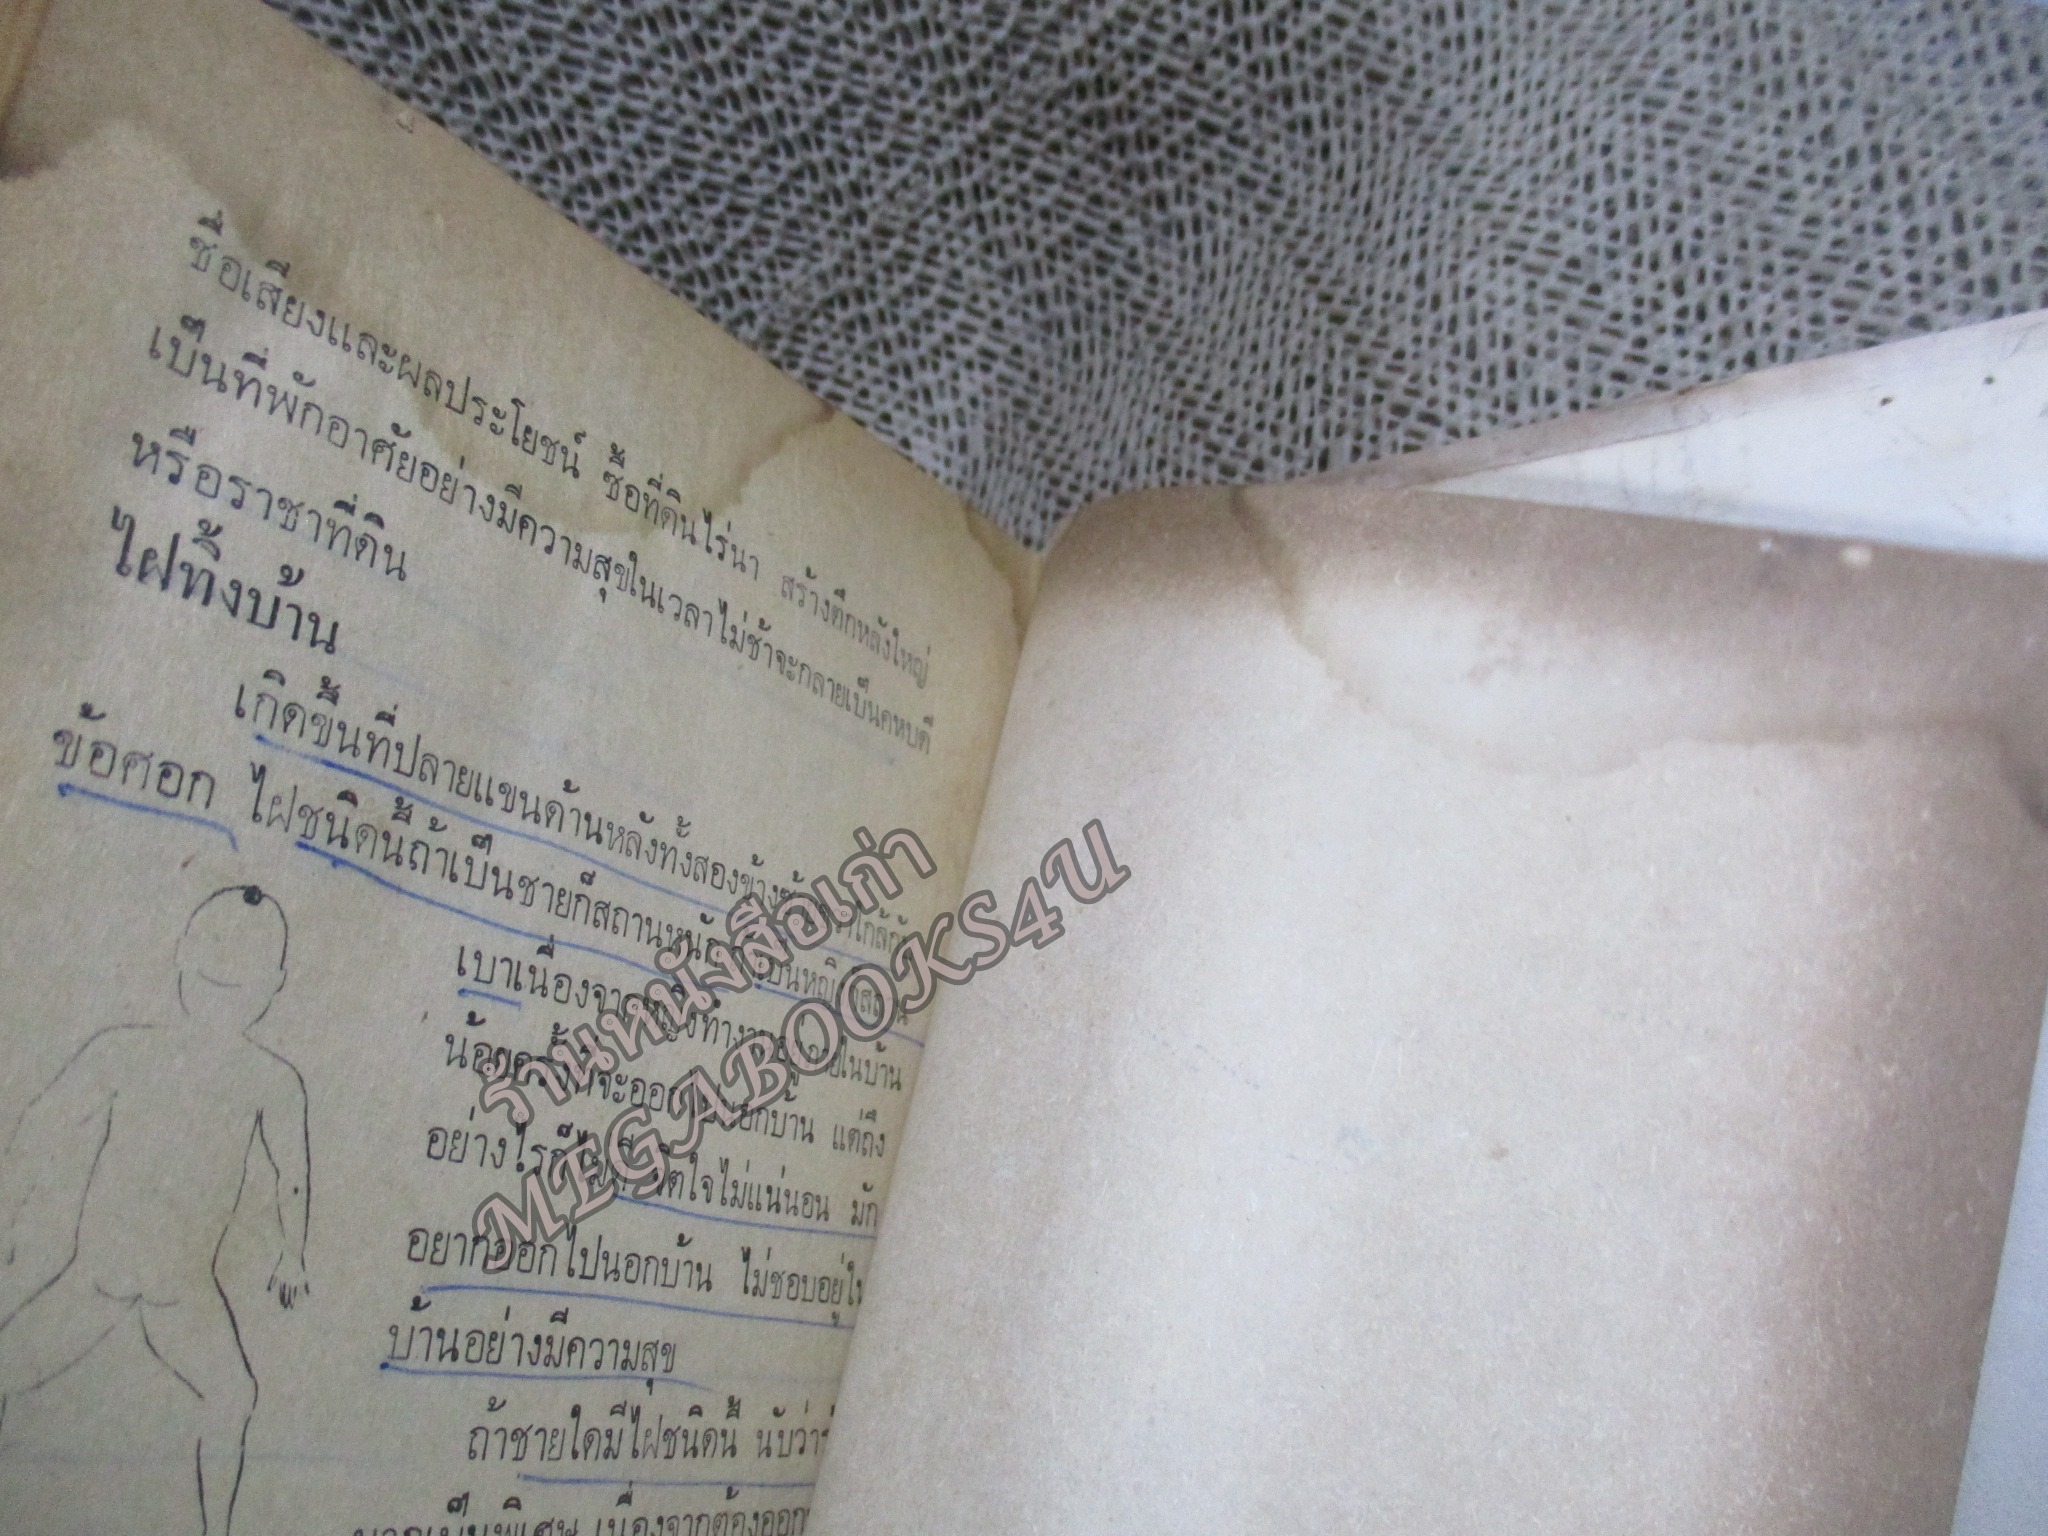 ชื่อเสียงและผลประโยชน์ ซื้อที่ดินไร่นา สร้างตึกหลังใหญ่
เป็นที่พักอาศัยอย่างมีความสุขในเวลาไม่ช้าจะกลายเป็นคหบดี
หรือราชาที่ดิน
ไฝทิ้งบ้าน
เกิดขึ้นที่ปลายแขนด้านหลังทั้งสองข้าง
ข้อศอก ไฝชนิดนี้ถ้าเป็นชายก็สถานหนัก
เบาเนื่องจากหญิงทำงานอยู่ภายในบ้าน
น้อยครั้งที่จะออกไปนอกบ้าน แต่ถึง
อย่างไรก็ จิตใจไม่แน่นอน มัก
อยากออกไปนอกบ้าน ไม่ชอบอยู่
บ้านอย่างมีความสุข
ถ้าชายใดมีไฝชนิดนี้ นับว่า
เป็นพิเศษ เนื่องจากต้องออก
ร้านหนังสือเก่า
MEGABOOKS4U